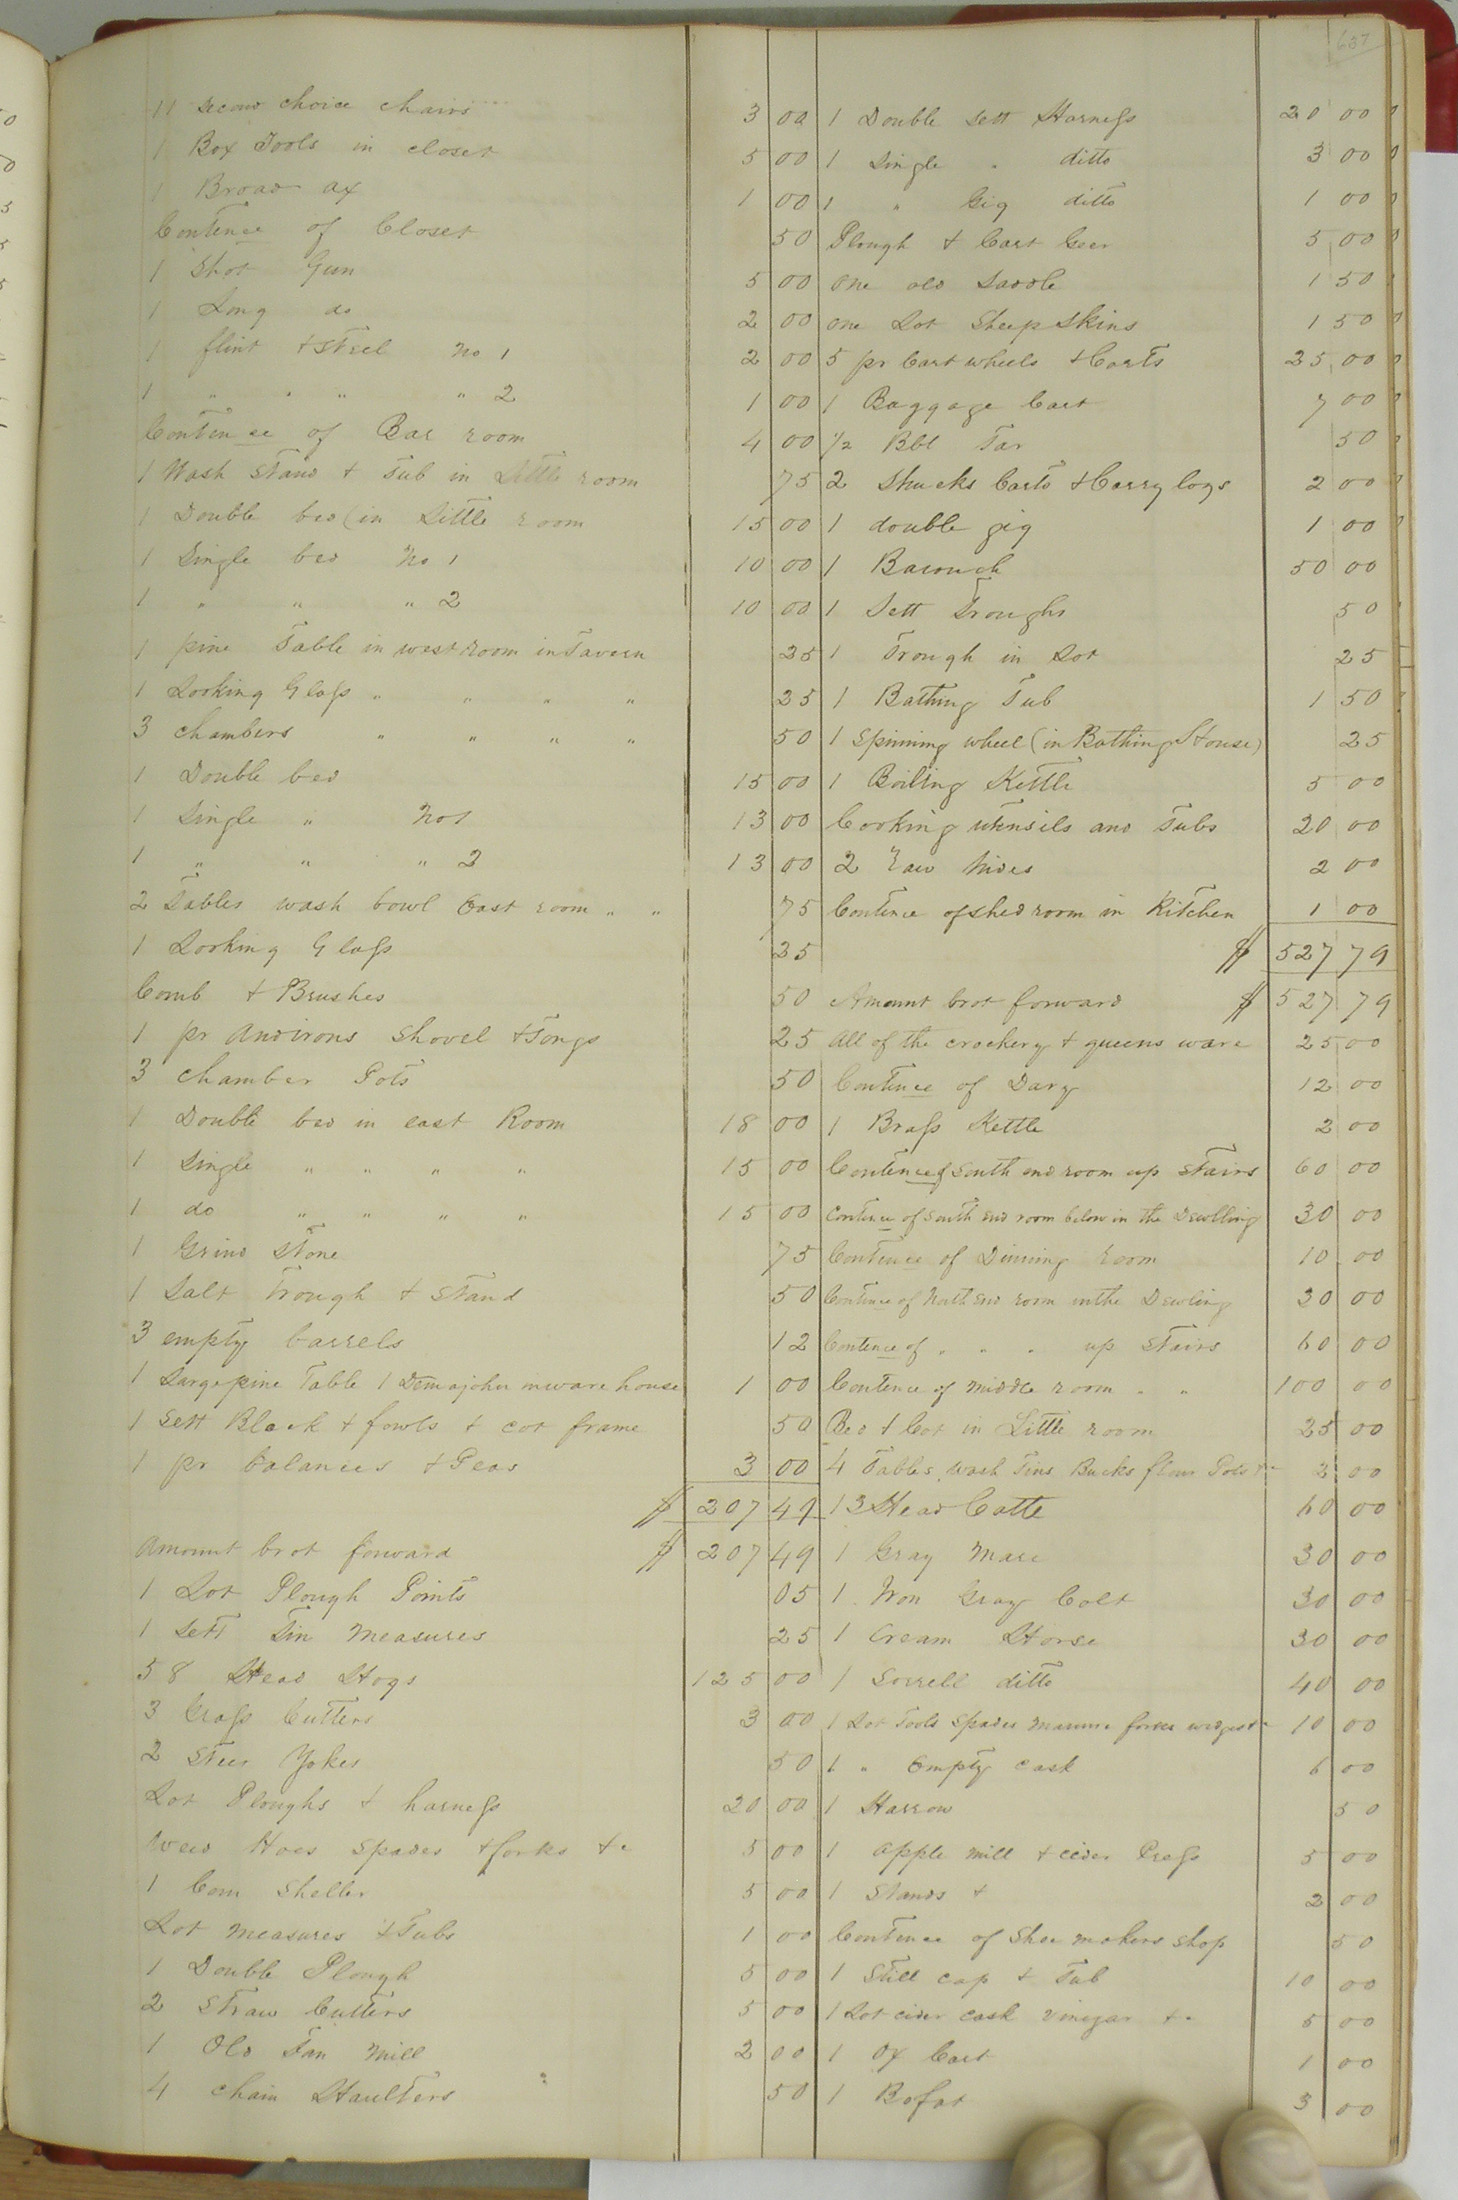 637
11 second choice chairs 3 00
1 Box Tools in closet 5 00
1 Broad ax 1 00
Contence of Closet 50
1 Shot Gun 5 00
1 Long do 2 00
1 flint & Steel No 1 2 00
1 " " " " 2 1 00
Contence of Bar room 4 00
1 Wash Stand & Tub in Little room 75
1 Double bed (in Little room 15 00
1 Single bed No 1 10 00
1 " " " 2 10 00
1 pine Table in west room in Tavern 25
1 Looking Glass " " " " 25
3 chambers " " " " 50
1 Double bed 15 00
1 Single " No 1 13 00
1 " " " 2 13 00
2 Tables wash bowl East room " " 75
1 Looking Glass 25
Comb & Brushes 50
1 pr Andirons Shovel & Tongs 25
3 chamber Pots 50
1 Double bed in east Room 18 00
1 Single " " " " 15 00
1 do " " " " 15 00
1 Grind Stone 75
1 Salt Trough & Stand 50
3 empty barrels 12
1 Large pine Table 1 Demajohn in ware house 1 00
1 Sett Block & fowls & cot frame 50
1 pr balances & Peas 3 00
$ 207 49
Amount brot forward $ 207 49
1 Lot Plough Points 05
1 Sett Tin Measures 25
58 Head Hogs 125 00
3 Grass Cutters 3 00
2 Steer Yokes 50
Lot Ploughs & harness 20 00
Weed Hoes Spades & forks &c 5 00
1 Corn Sheller 5 00
Lot measures & Tubs 1 00
1 Double Plough 5 00
2 Straw Cutters 5 00
1 Old Fan Mill 2 00
4 chain Haulters 50
1 Double Sett Harness 20 00
1 Single " ditto 3 00
1 " Gig ditto 1 00
Plough & Cart Geer 5 00
One old Saddle 1 50
one Lot Sheep Skins 1 50
5 pr Cart wheels & Carts 25 00
1 Baggage Cart 7 00
1/2 Bbl Tar 50
2 Shucks Carts & Carry logs 2 00
1 double gig 1 00
1 Barouch 50 00
1 Sett Troughs 50
1 Trough in Lot 25
1 Bathing Tub 1 50
1 Spinning wheel (in Bathing House) 25
1 Boiling Kettle 5 00
Cooking utensils and Tubs 20 00
2 Raw hides 2 00
Contence of shed room in Kitchen 1 00
$ 527 79
Amount brot forward $ 527 79
All of the crockery & queens ware 25 00
Contence of Dary 12 00
1 Brass Kettle 2 00
Contence of South end room up Stairs 60 00
Contence of South end room below in the Dwelling 30 00
Contence of Dinning room 10 00
Contence of North end room in the Dweling 30 00
Contence of " " " up Stairs 60 00
Contence of middle room " " 100 00
Bed & Cot in Little room 25 00
4 Tables wash Tins Bucks flour Pots &c 2 00
13 Head Catte 60 00
1 Gray Mare 30 00
1 Iron Gray Colt 30 00
1 Cream Horse 30 00
1 Sorrell ditto 40 00
1 Lot Tools Spades manure forks wedges &c 10 00
1 " Empty cask 6 00
1 Harrow 50
1 apple mill & cider Press 5 00
1 Stands & 2 00
Contence of Shoe makers shop 50
1 Still cap & Tub 10 00
1 Lot cider cask vinegar &c 5 00
1 Ox Cart 1 00
1 Bofat 3 00